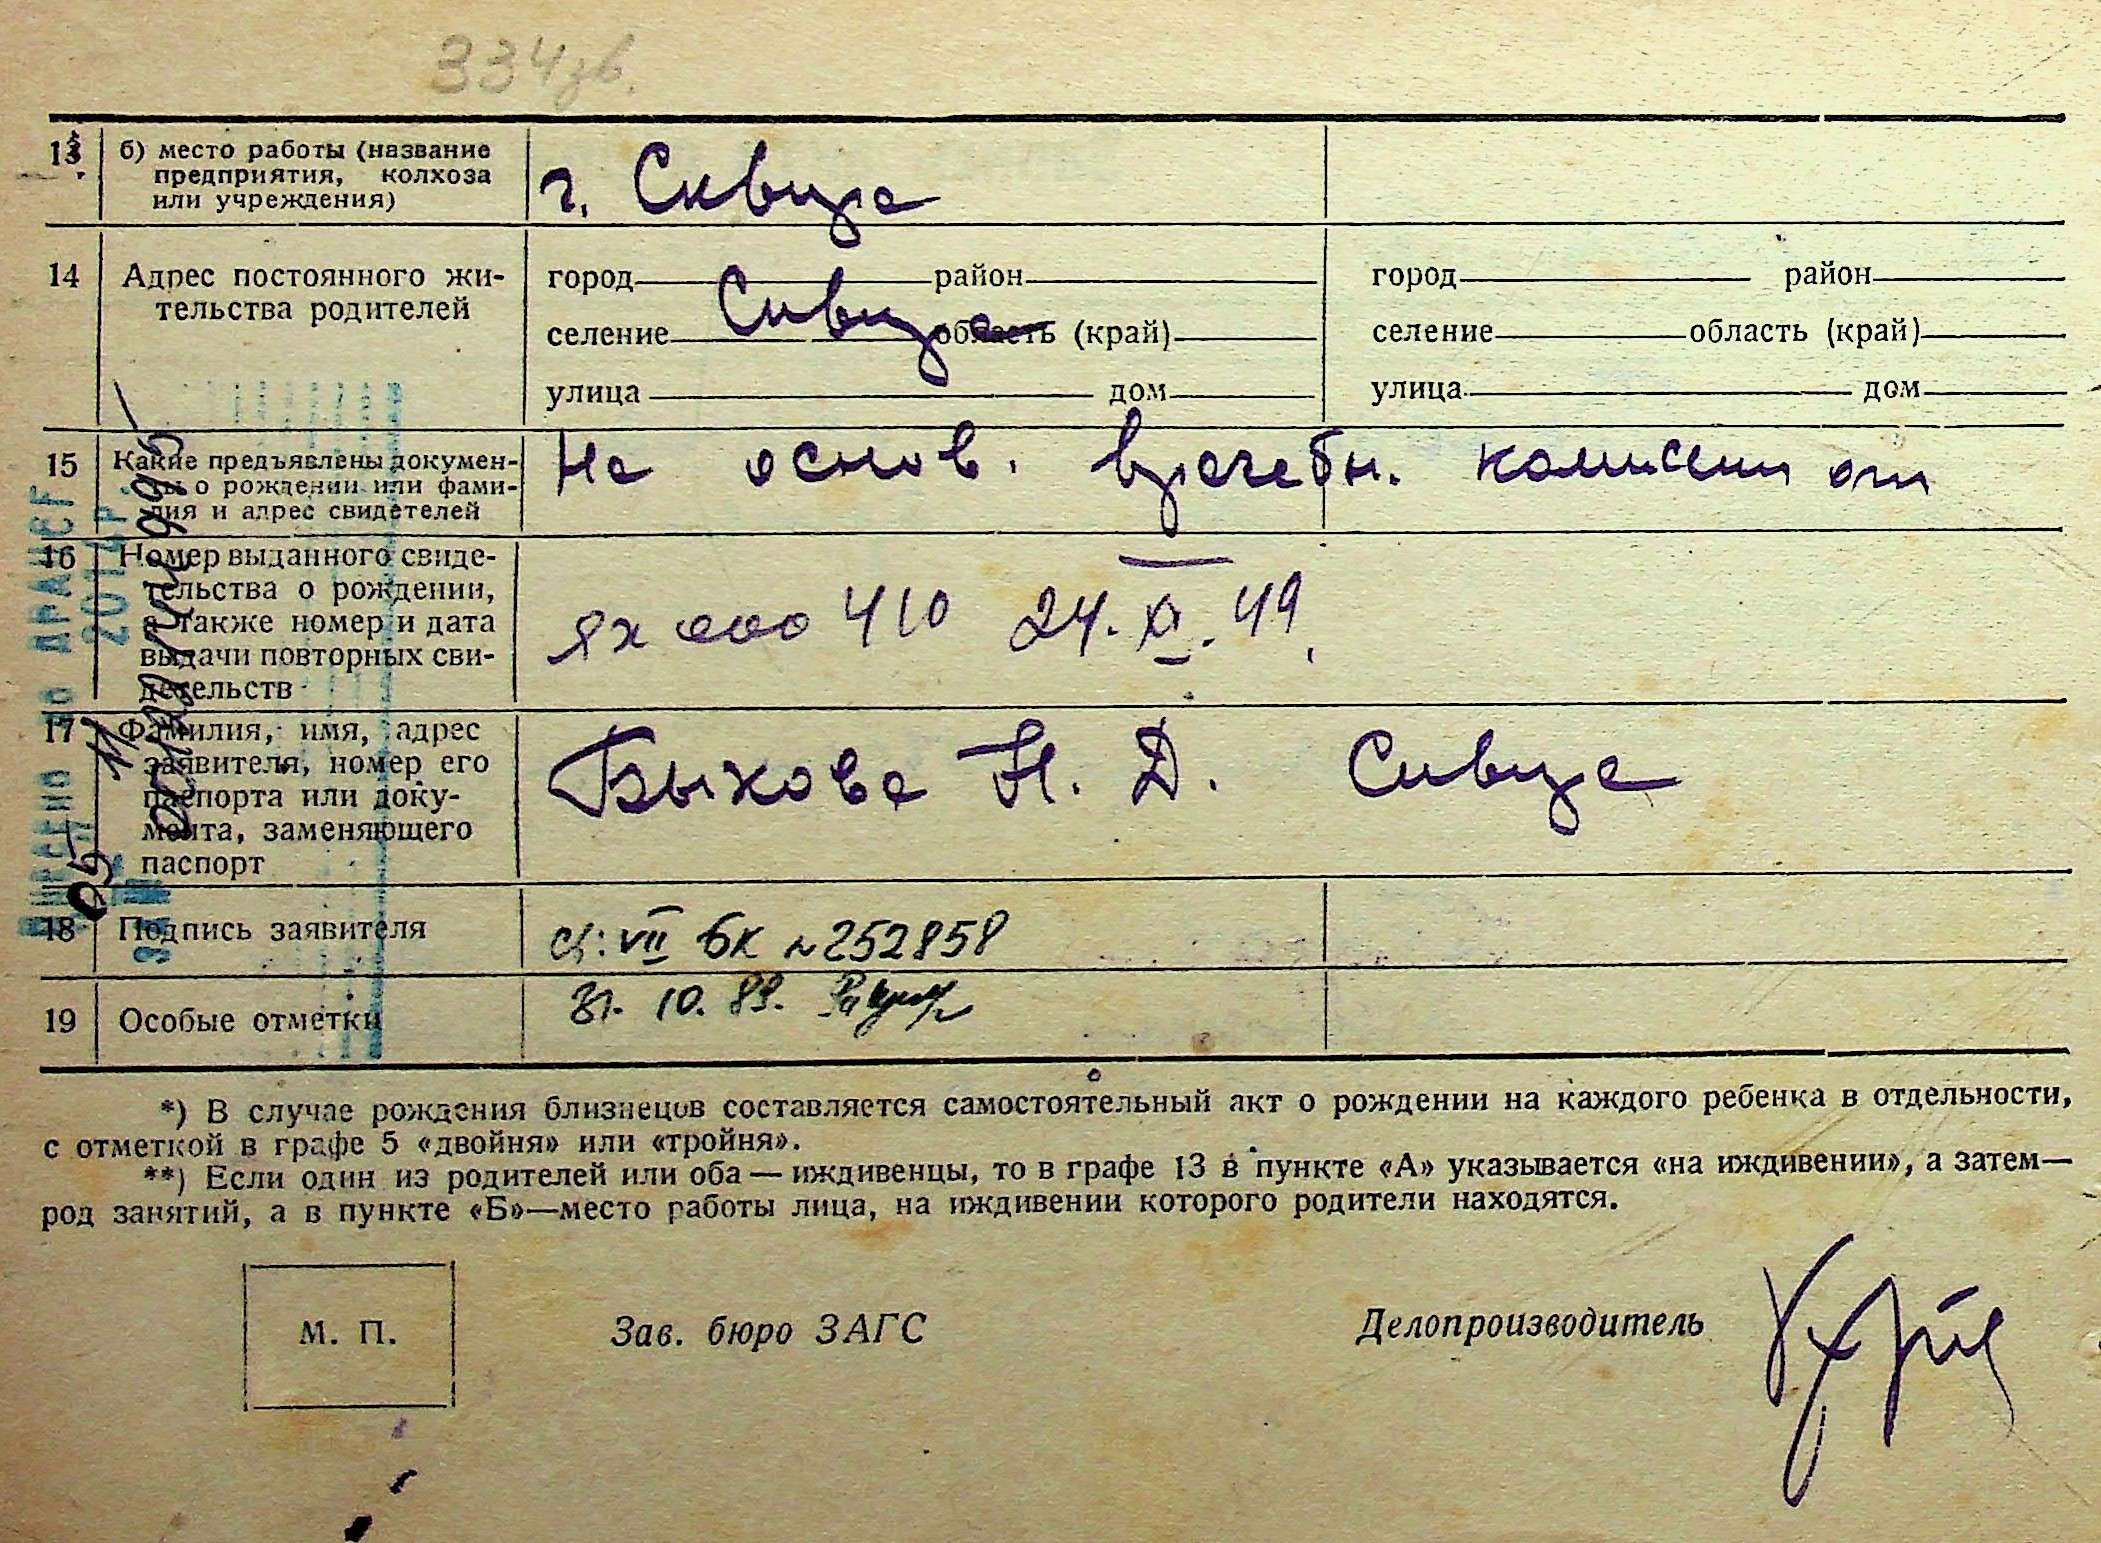 334зв.
13 б) место работы (название
предприятия, колхоза
или учреждения)
г. Сквира
14 Адрес постоянного жи-
тельства родителей
город район город район
Сквира
селение область (край) селение область (край)
улица дом улица дом
15 Какие предъявлены докумен-
ты о рождении или фами-
лия и адрес свидетелей
На основ. врачебн. комиссии
16 Номер выданного свиде-
тельства о рождении,
а также номер и дата
выдачи повторных сви-
детельств
ЯХ 000410 24. XI. 49
17 Фамилия, имя, адрес
заявителя, номер его
паспорта или доку-
мента, заменяющего
паспорт
Быкова Н. Д. Сквира
18 Подпись заявителя
VII БК №252858
19 Особые отметки
31. 10. 89.
*) В случае рождения близнецов составляется самостоятельный акт о рождении на каждого ребенка в отдельности,
с отметкой в графе 5 «двойня» или «тройня».
**) Если один из родителей или оба — иждивенцы, то в графе 13 в пункте «А» указывается «на иждивении», а затем—
род занятий, а в пункте «Б»—место работы лица, на иждивении которого родители находятся.
М. П. Зав. бюро ЗАГС Делопроизводитель